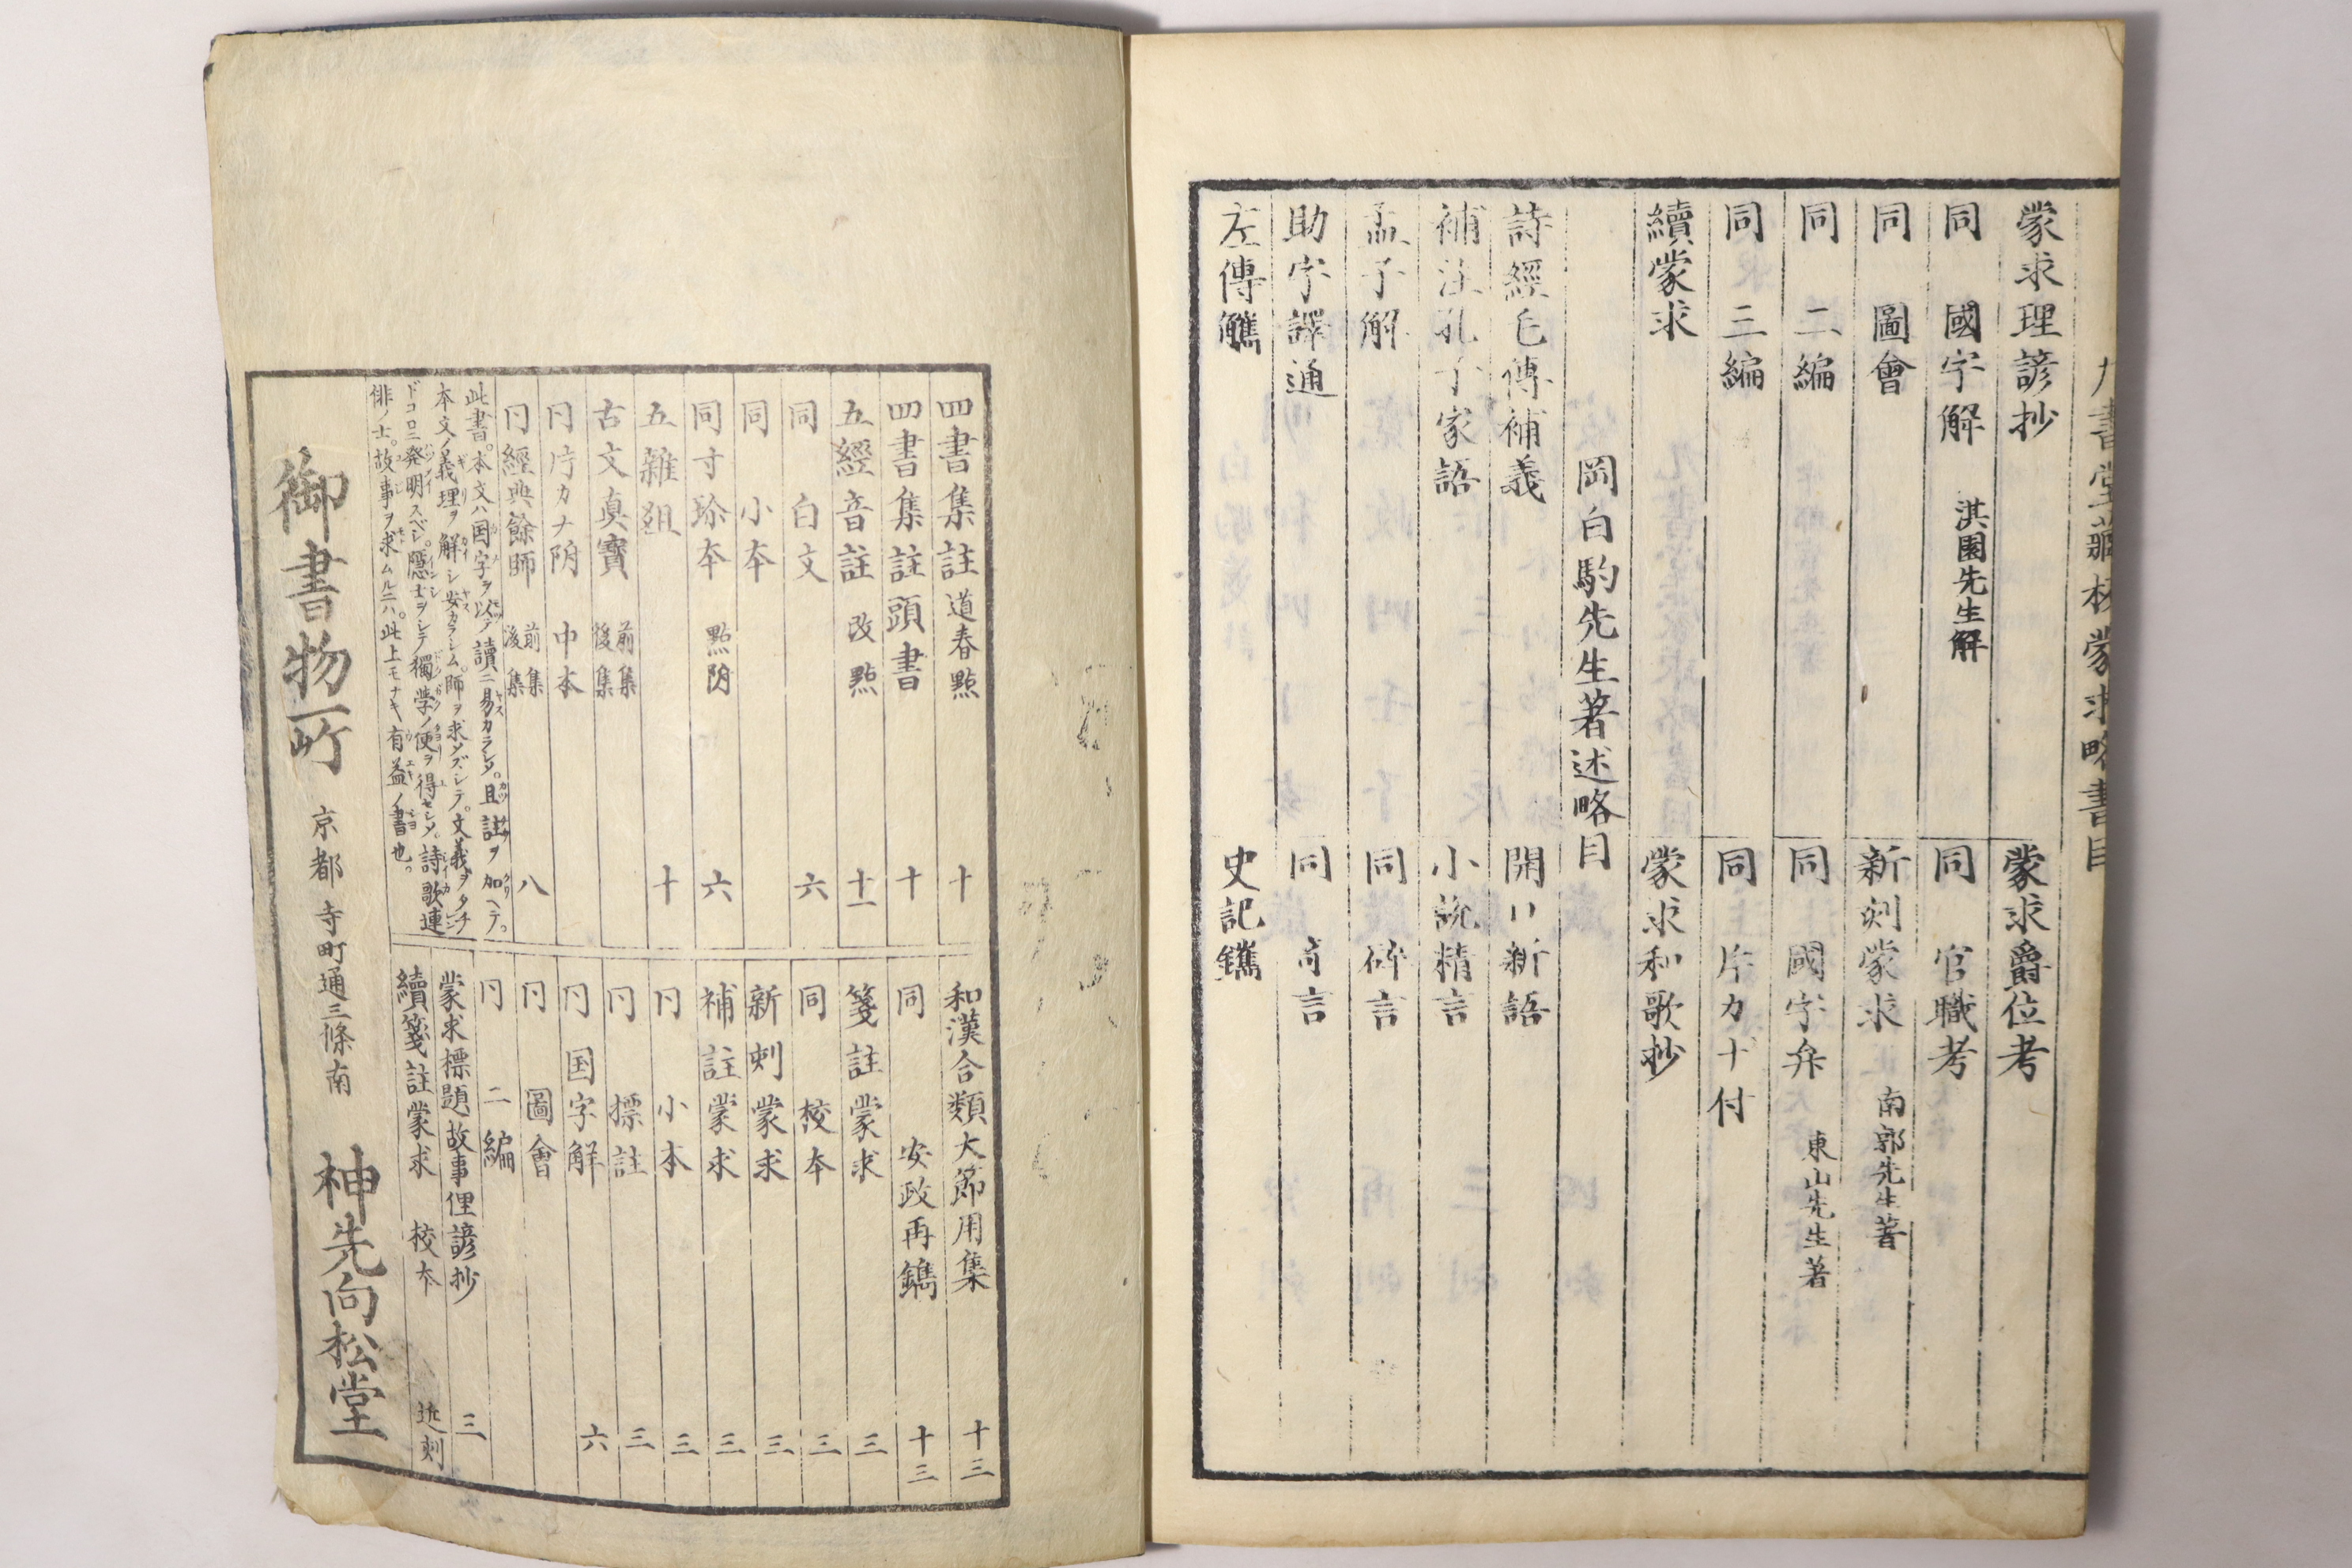 書堂藏板蒙求略書目
蒙求理諺抄
蒙求爵位考
同 國字解 淇園先生解
同 官職考
同 圖會
新刻蒙求 南郭先生著
同 二編
同 國字弁 東山先生著
同 三編
同 片カナ付
續蒙求
蒙求和歌抄
岡白駒先生著述略目
詩經毛傳補義
開口新語
補注孔子家語
小説精言
孟子解
同 碎言
助字譯通
同 奇言
左傳觹
史記觿
四書集註 道春點 十
四書集註頭書 十
五經音註 改點 十一
同 白文 六
同 小本
同寸珍本 點附 六
五雜組 十
古文真寶 前集 後集
同片カナ附 中本
同經典餘師 前集 後集 八
此書。本文ハ国字ヲ以テ讀ニ易カラシメ。且註ヲ加ヘテ。
本文ノ義理ヲ解シ安カラシム。師ヲ求メズシテ。文義ヲタチ
ドコロニ発明スベシ。隱士ヲシテ獨学ノ便ヲ得セシメ。詩歌連
俳ノ士。故事ヲ求ムルニハ。此上モナキ有益ノ書也。
和漢合類大節用集 十三
同 安政再鐫 十三
箋註蒙求 三
同 校本 三
新刻蒙求 三
補註蒙求 三
同 小本 三
同 標註 三
同 国字解 六
同 圖會
同 二編
蒙求標題故事俚諺抄 三
續箋註蒙求 校本 近刻
御書物所 京都寺町通三條南 神先向松堂